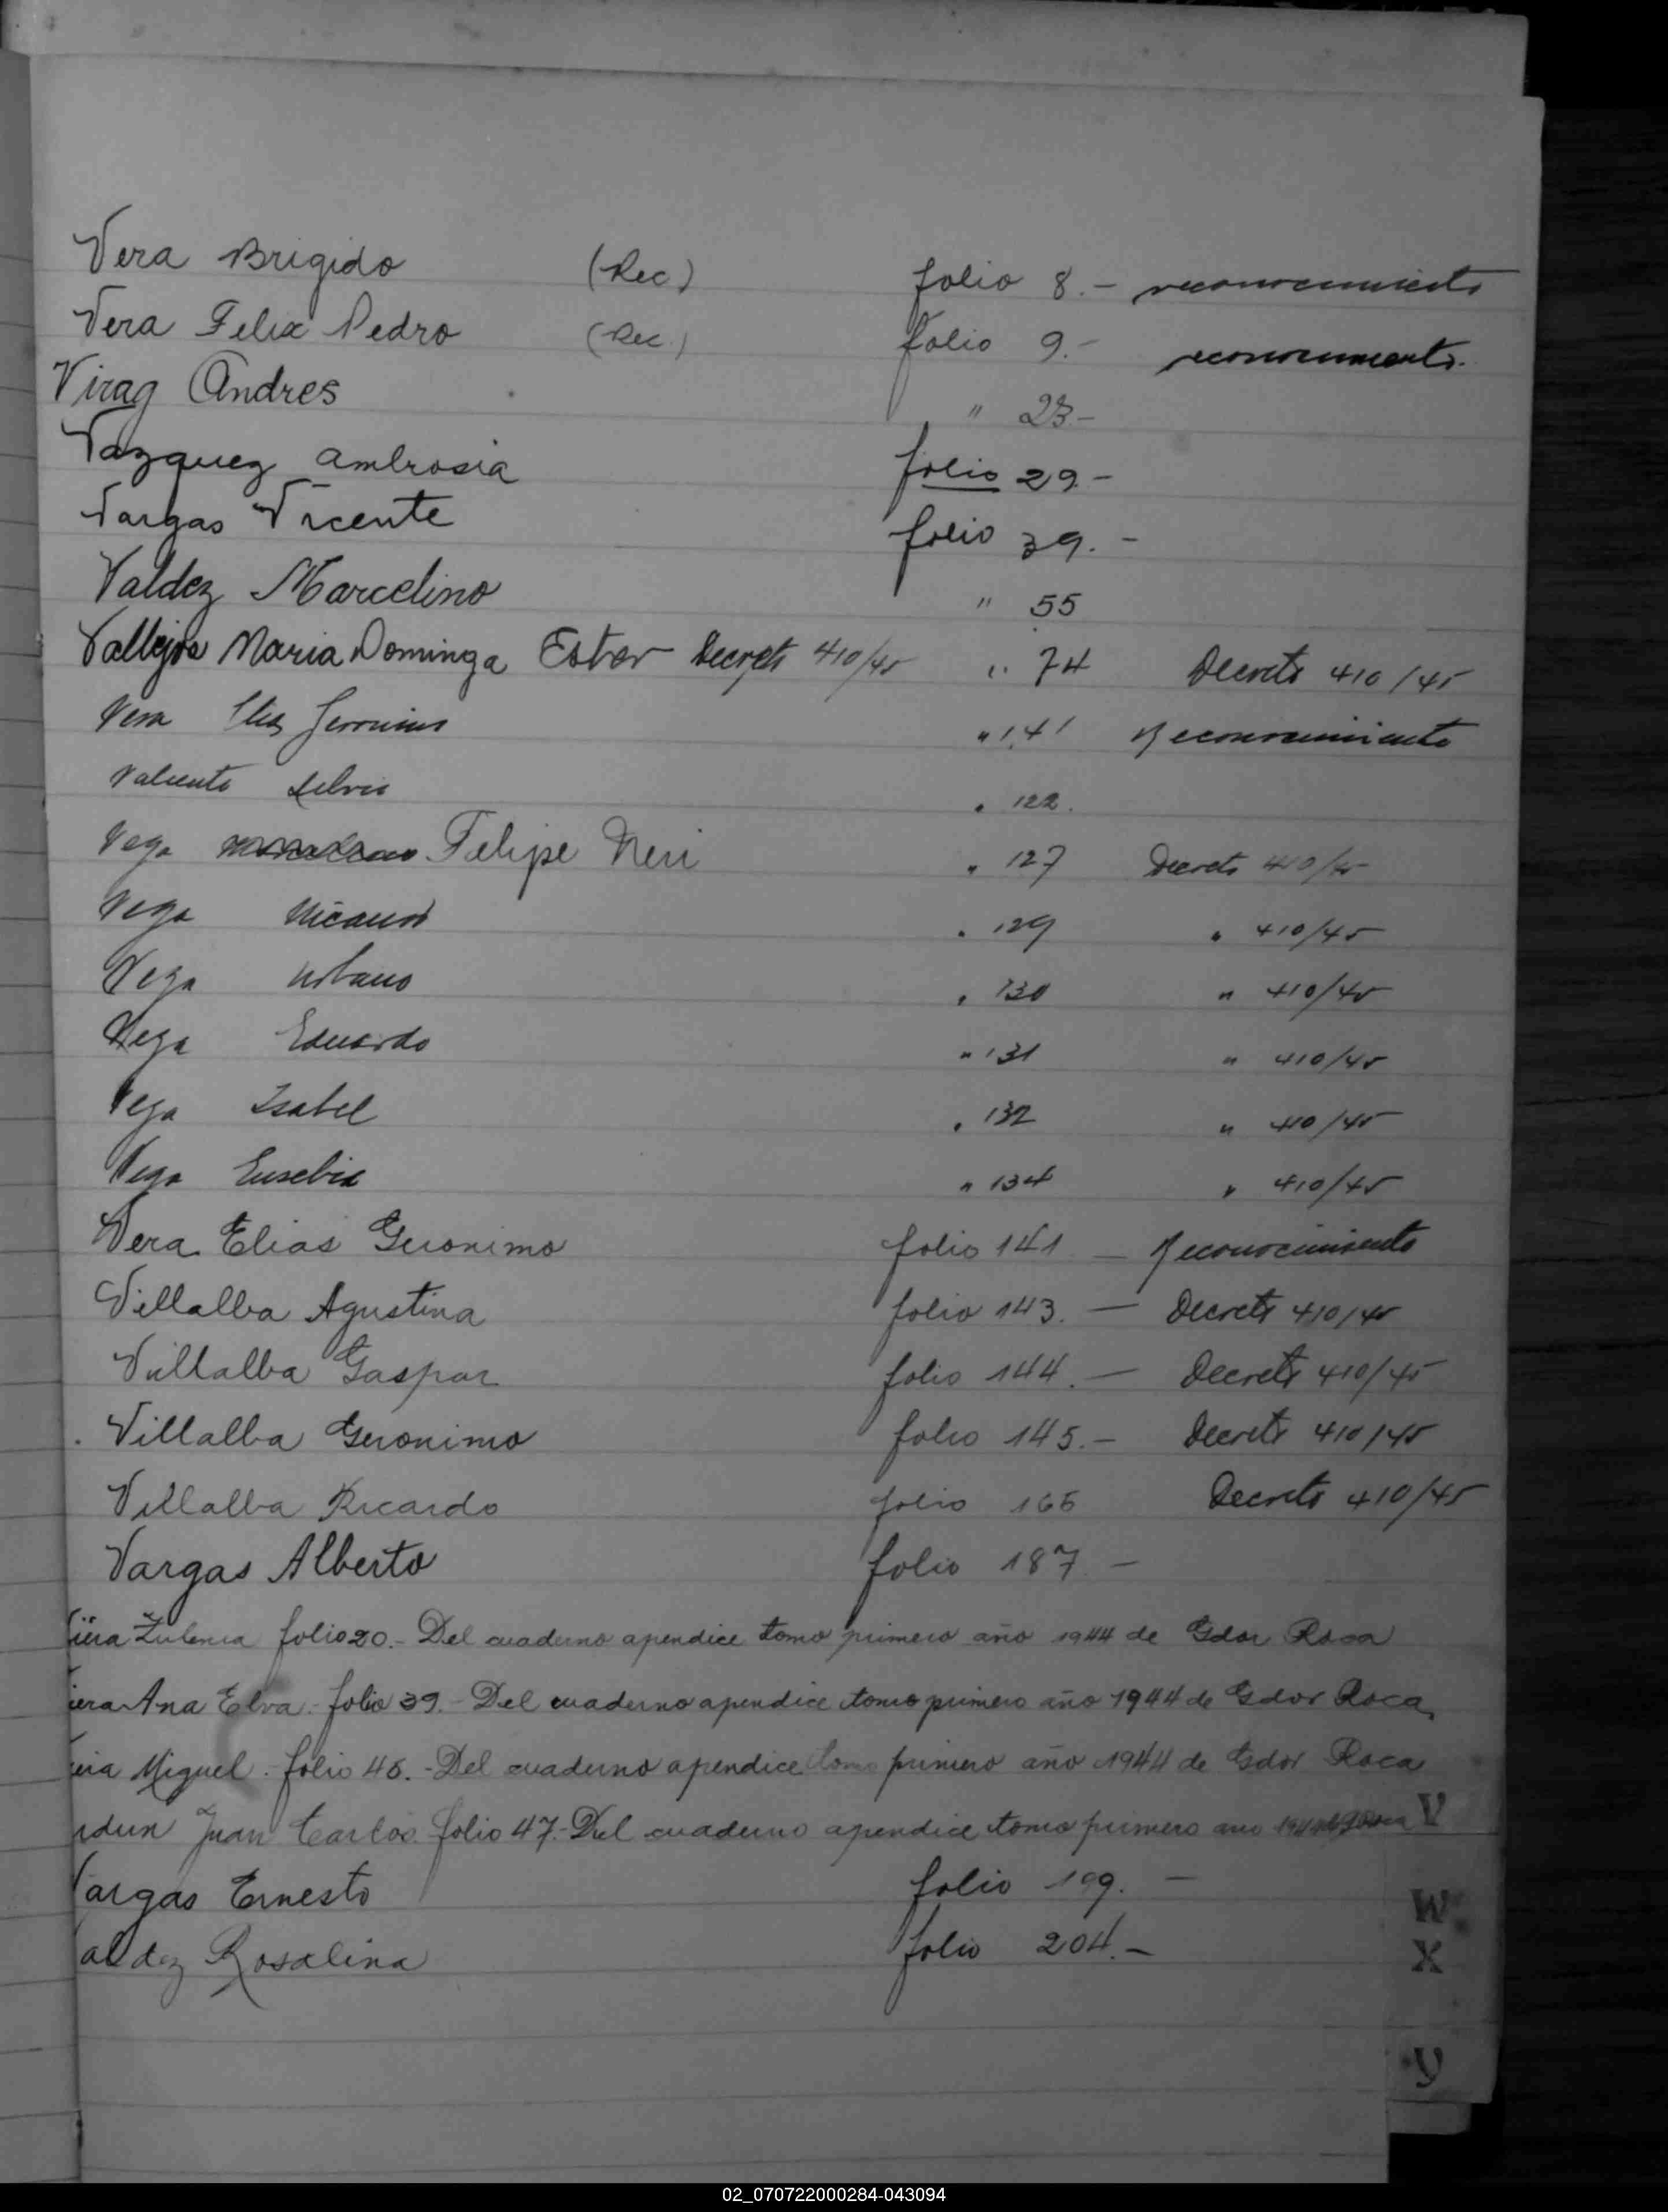 Vera Brigido (Rec) folio 8.- reconocimiento
Vera Felix Pedro (Rec.) folio 9.- reconocimiento.
Virag Andres " 23.-
Vazquez Ambrosia folio 29.-
Vargas Vicente folio 39.-
Valdez Marcelino " 55
Vallejos Maria Dominga Ester Decreto 410/45 " 74 Decreto 410/45
Vera Elias Jeronimo " 141 Reconocimiento
Valiente Silvio " 122.
Vega Felipe Neri " 127 Decreto 410/45
Vega Nicanor " 129 " 410/45
Vega Urbano " 130 " 410/45
Vega Eduardo " 131 " 410/45
Vega Isabel " 132 " 410/45
Vega Eusebia " 134 " 410/45
Vera Elias Geronimo folio 141 — Reconocimiento
Villalba Agustina folio 143. — Decreto 410/45
Villalba Gaspar folio 144. — Decreto 410/45
Villalba Geronimo folio 145.- Decreto 410/45
Villalba Ricardo folio 166 Decreto 410/45
Vargas Alberto folio 187 —
folio 20.- Del cuaderno apendice tomo primero año 1944 de Gdor Roca
Ana Elva. folio 39.- Del cuaderno apendice tomo primero año 1944 de Gdor Roca
Miguel. folio 45.- Del cuaderno apendice tomo primero año 1944 de Gdor Roca
Juan Carlos folio 47.- Del cuaderno apendice tomo primero ano 1944
V
Vargas Ernesto folio 199. —
W
aldez Rosalina folio 204.-
X
Y
02_070722000284-043094